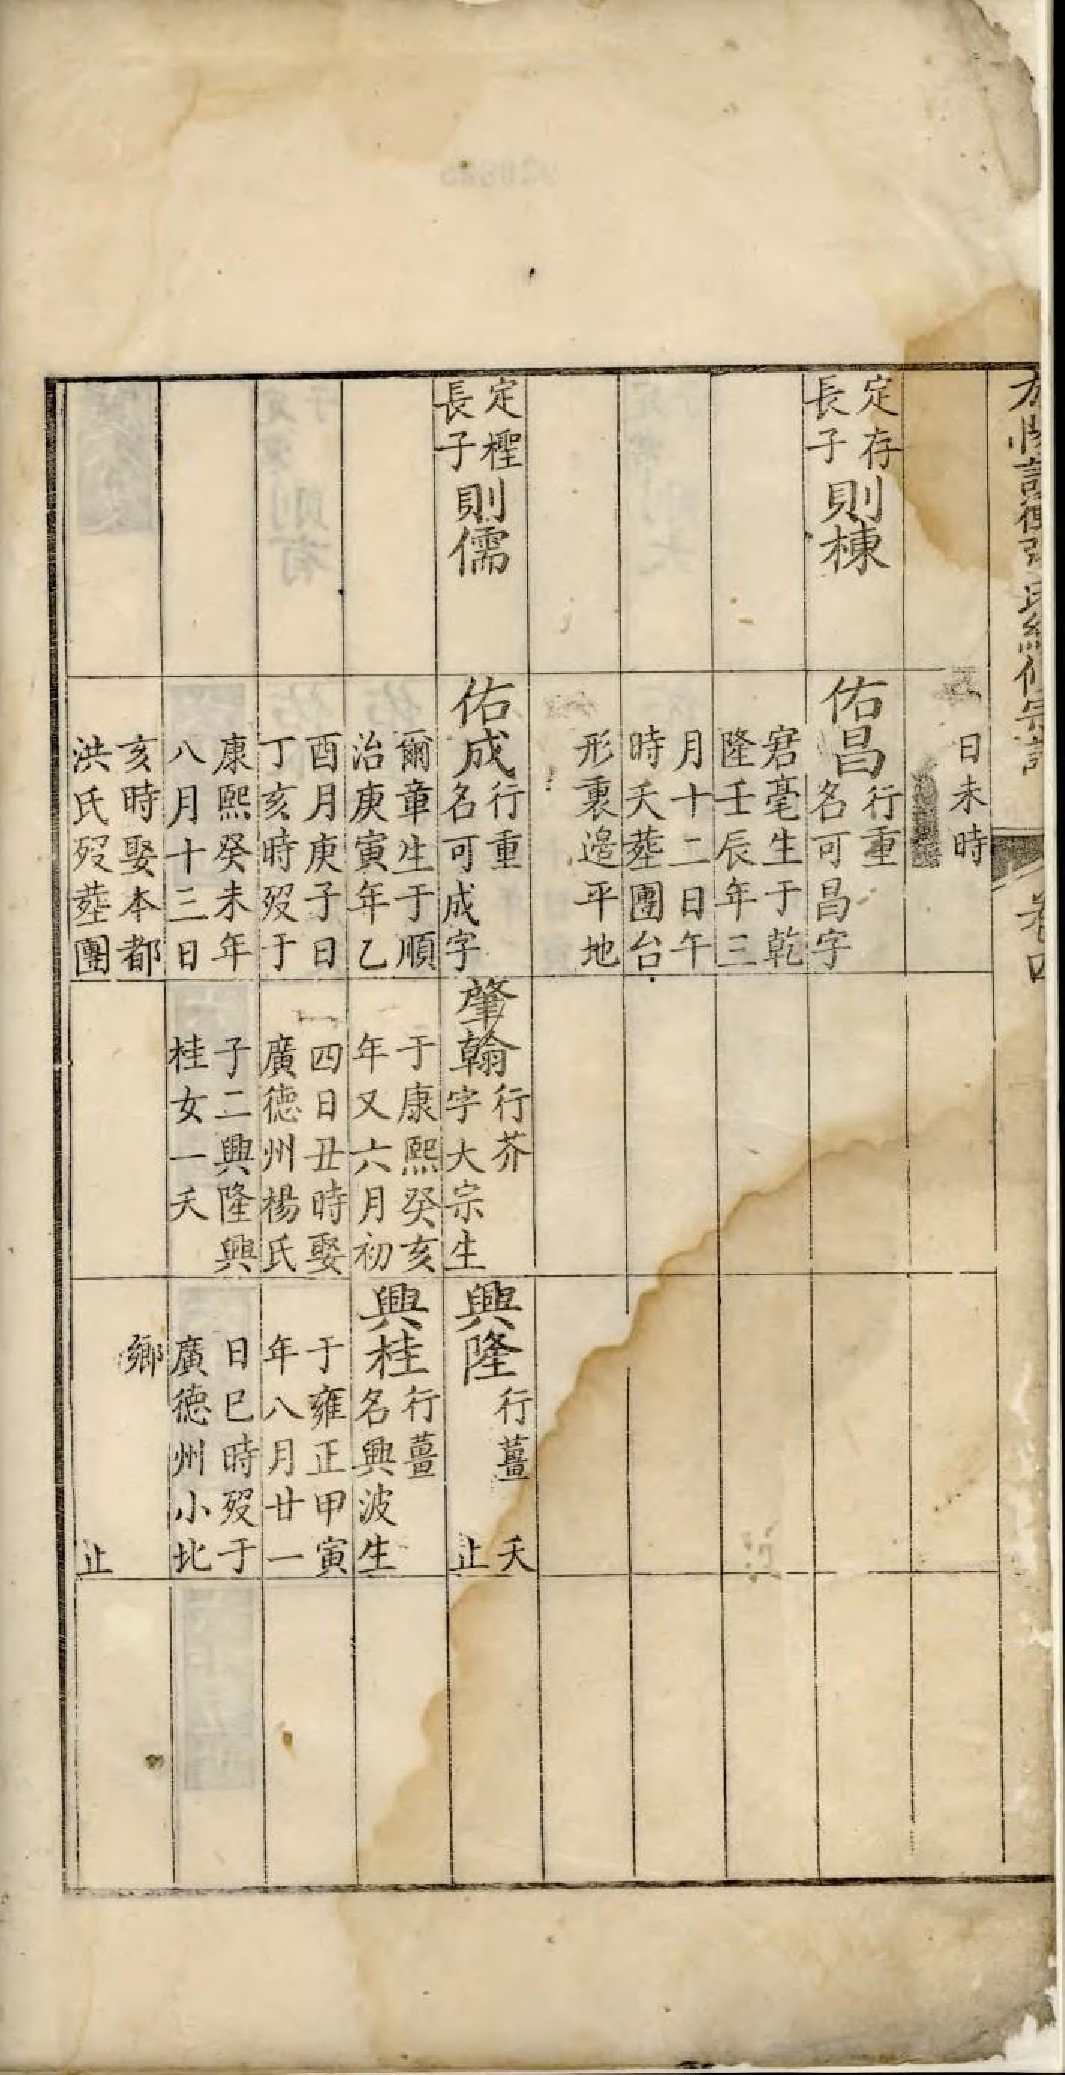 卷四
定存
長子
則棟
定樫
長子
則儒
日未時
佑昌
行重
名可昌字
毫生于乾
隆壬辰年三
月十二日午
時夭塟團台
形裏邉平地
佑成
行重
名可成字
爾章生于順
治庚寅年乙
酉月庚子日
丁亥時歿于
康熙癸未年
八月十三日
亥時娶本都
洪氏歿塟團
肇翰
行芥
字大宗生
于康熙癸亥
年又六月初
四日丑時娶
廣德州楊氏
子二興隆興
桂女一夭
興隆
行薑 夭
止
興桂
行薑
名興波生
于雍正甲寅
年八月廿一
日巳時歿于
廣德州小北
鄉
止